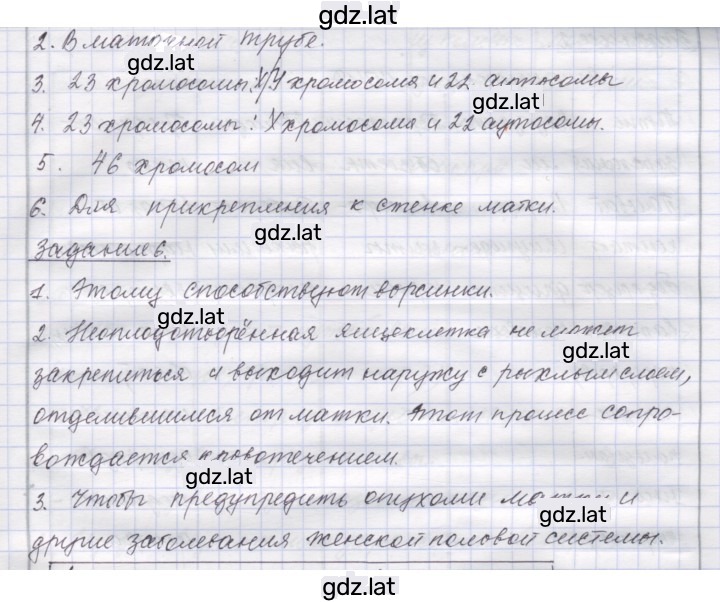 gdz.lat
2. В маточной трубе.
gdz.lat
3. 23 хромосомы: X/У хромосома и 22 аутосомы
gdz.lat
4. 23 хромосомы: X хромосома и 22 аутосомы.
5. 46 хромосом
6. Для прикрепления к стенке матки.
gdz.lat
Задание 6.
1. Этому способствуют ворсинки.
gdz.lat
2. Неоплодотворённая яйцеклетка не может
gdz.lat
закрепиться и выходит наружу с рыхлым слоем,
отделившимся от матки. Этот процесс сопро-
вождается кровотечением.
gdz.lat
3. Чтобы предупредить опухоли матки и
gdz.lat
другие заболевания женской половой системы.
gdz.lat